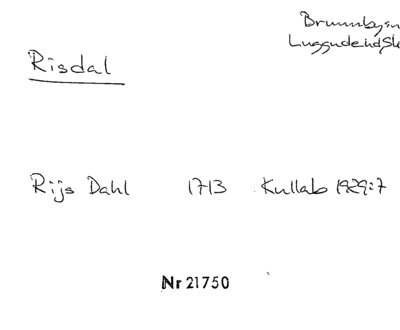 Brunnbysn
Luggude hd Sk
Risdal
Rijs Dahl 1713 Kullab 1929:7
Nr 21750